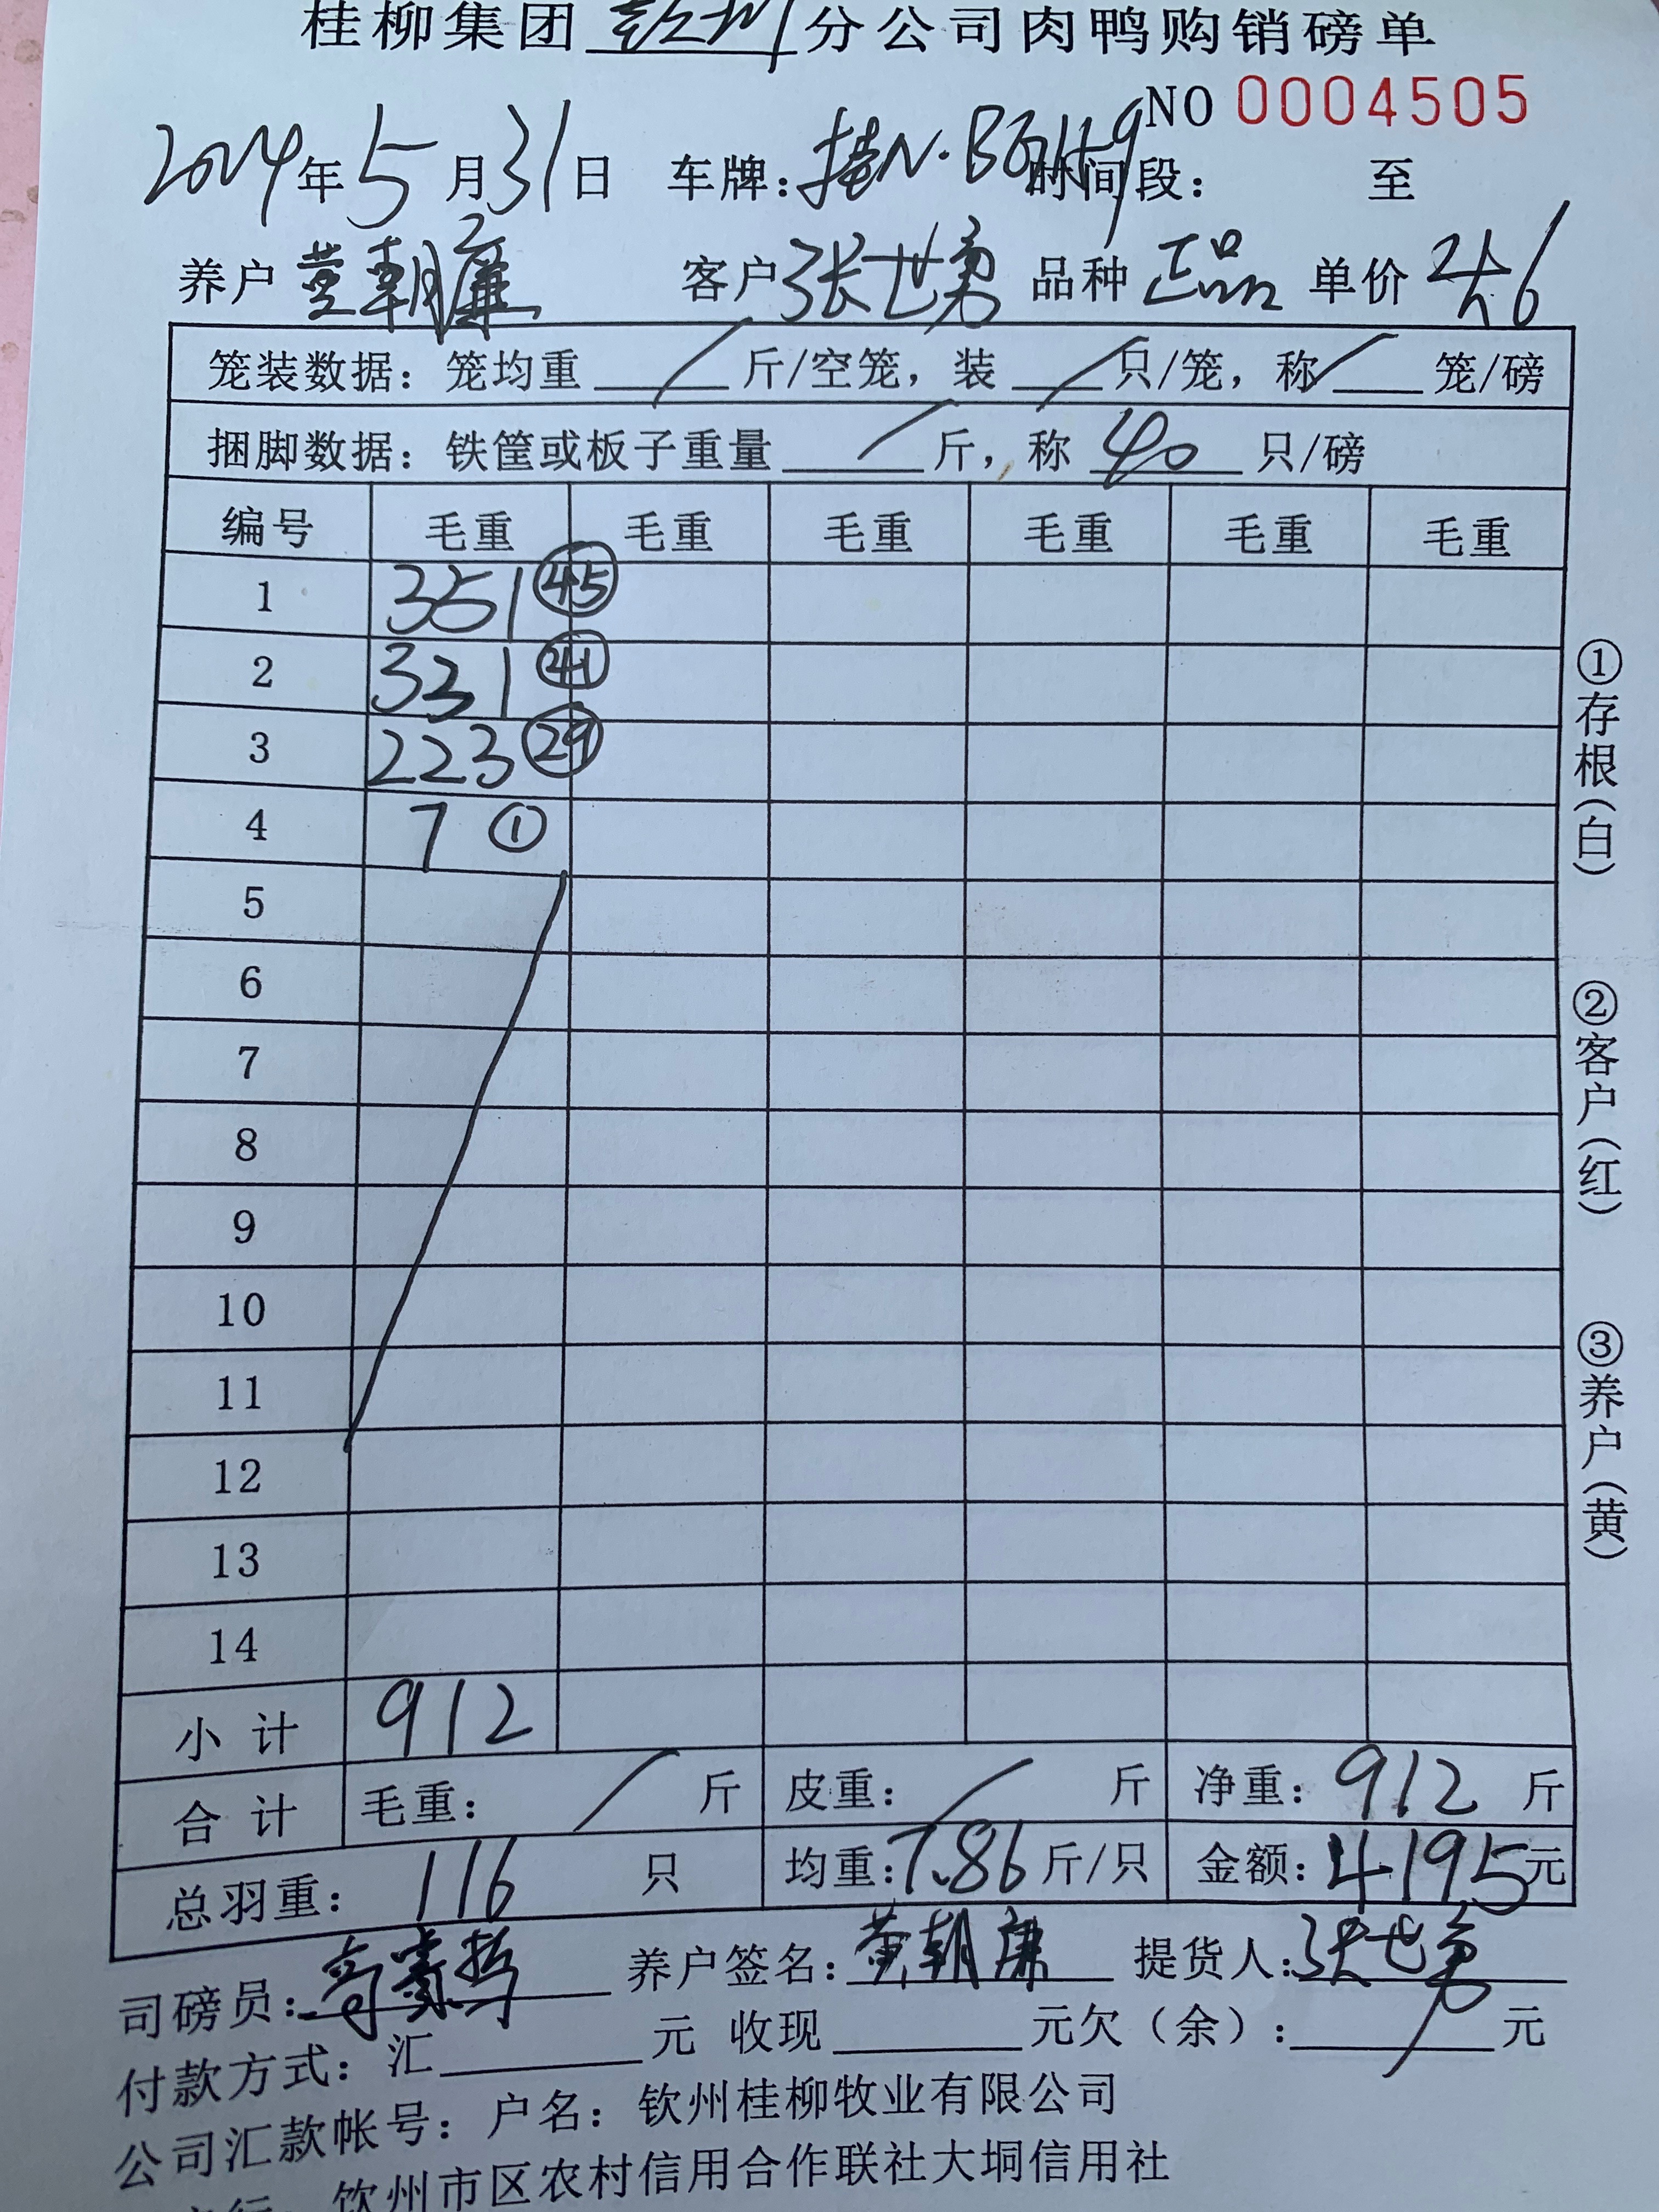 桂柳集团钦州分公司肉鸭购销磅单
NO 0004505
2024年5月31日 车牌: 桂N· 时间段: 至
养户 黄朝廉 客户 张世勇 品种 正品 单价 4.6
笼装数据: 笼均重 / 斤/空笼, 装 / 只/笼, 称 / 笼/磅
捆脚数据: 铁筐或板子重量 / 斤, 称 40 只/磅
编号 毛重 毛重 毛重 毛重 毛重 毛重
1 351 45
2 331 41
3 223 29
4 7 ①
5
6
7
8
9
10
11
12
13
14
小计 912
合计 毛重: / 斤 皮重: / 斤 净重: 912 斤
总羽重: 116 只 均重: 7.86 斤/只 金额: 4195 元
司磅员: 养户签名: 黄朝廉 提货人: 张世勇
付款方式: 汇 元 收现 元欠(余): / 元
公司汇款帐号: 户名: 钦州桂柳牧业有限公司
钦州市区农村信用合作联社大垌信用社
①存根(白)
②客户(红)
③养户(黄)